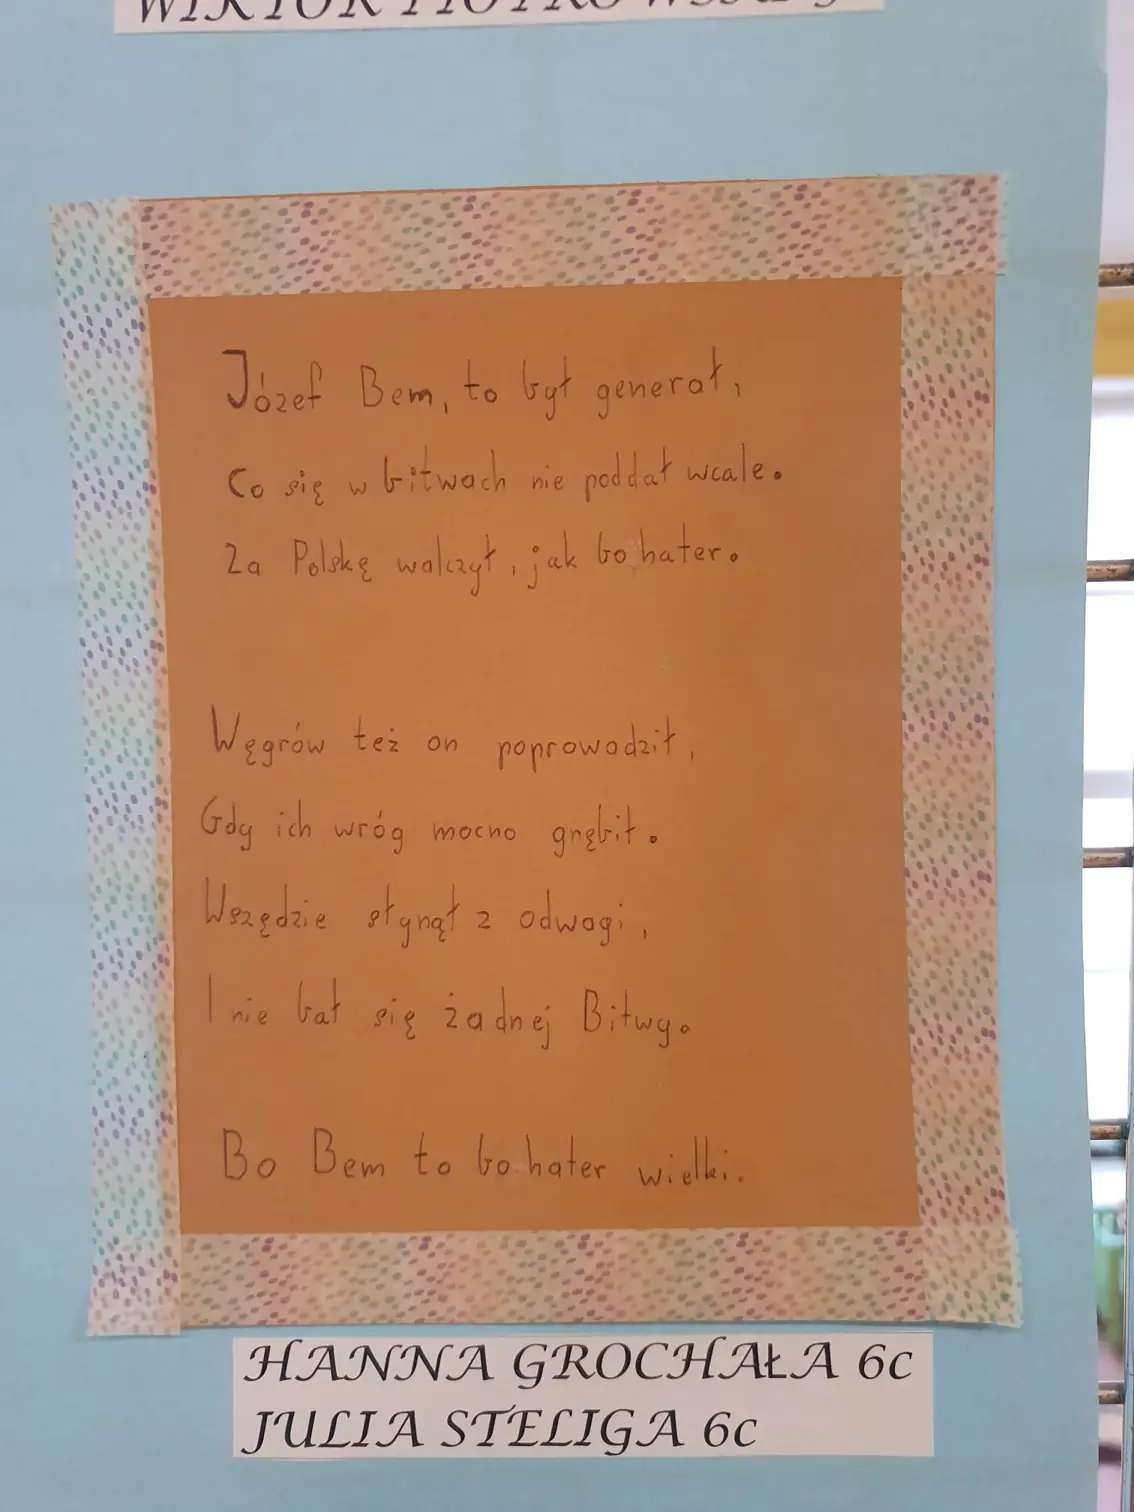 Józef Bem, to był generał,
Co się w bitwach nie poddał wcale.
Za Polskę walczył, jak bohater.
Węgrów też on poprowadził,
Gdy ich wróg mocno gnębił.
Wszędzie słynął z odwagi,
I nie bał się żadnej Bitwy.
Bo Bem to bohater wielki.
HANNA GROCHAŁA 6c
JULIA STELIGA 6c